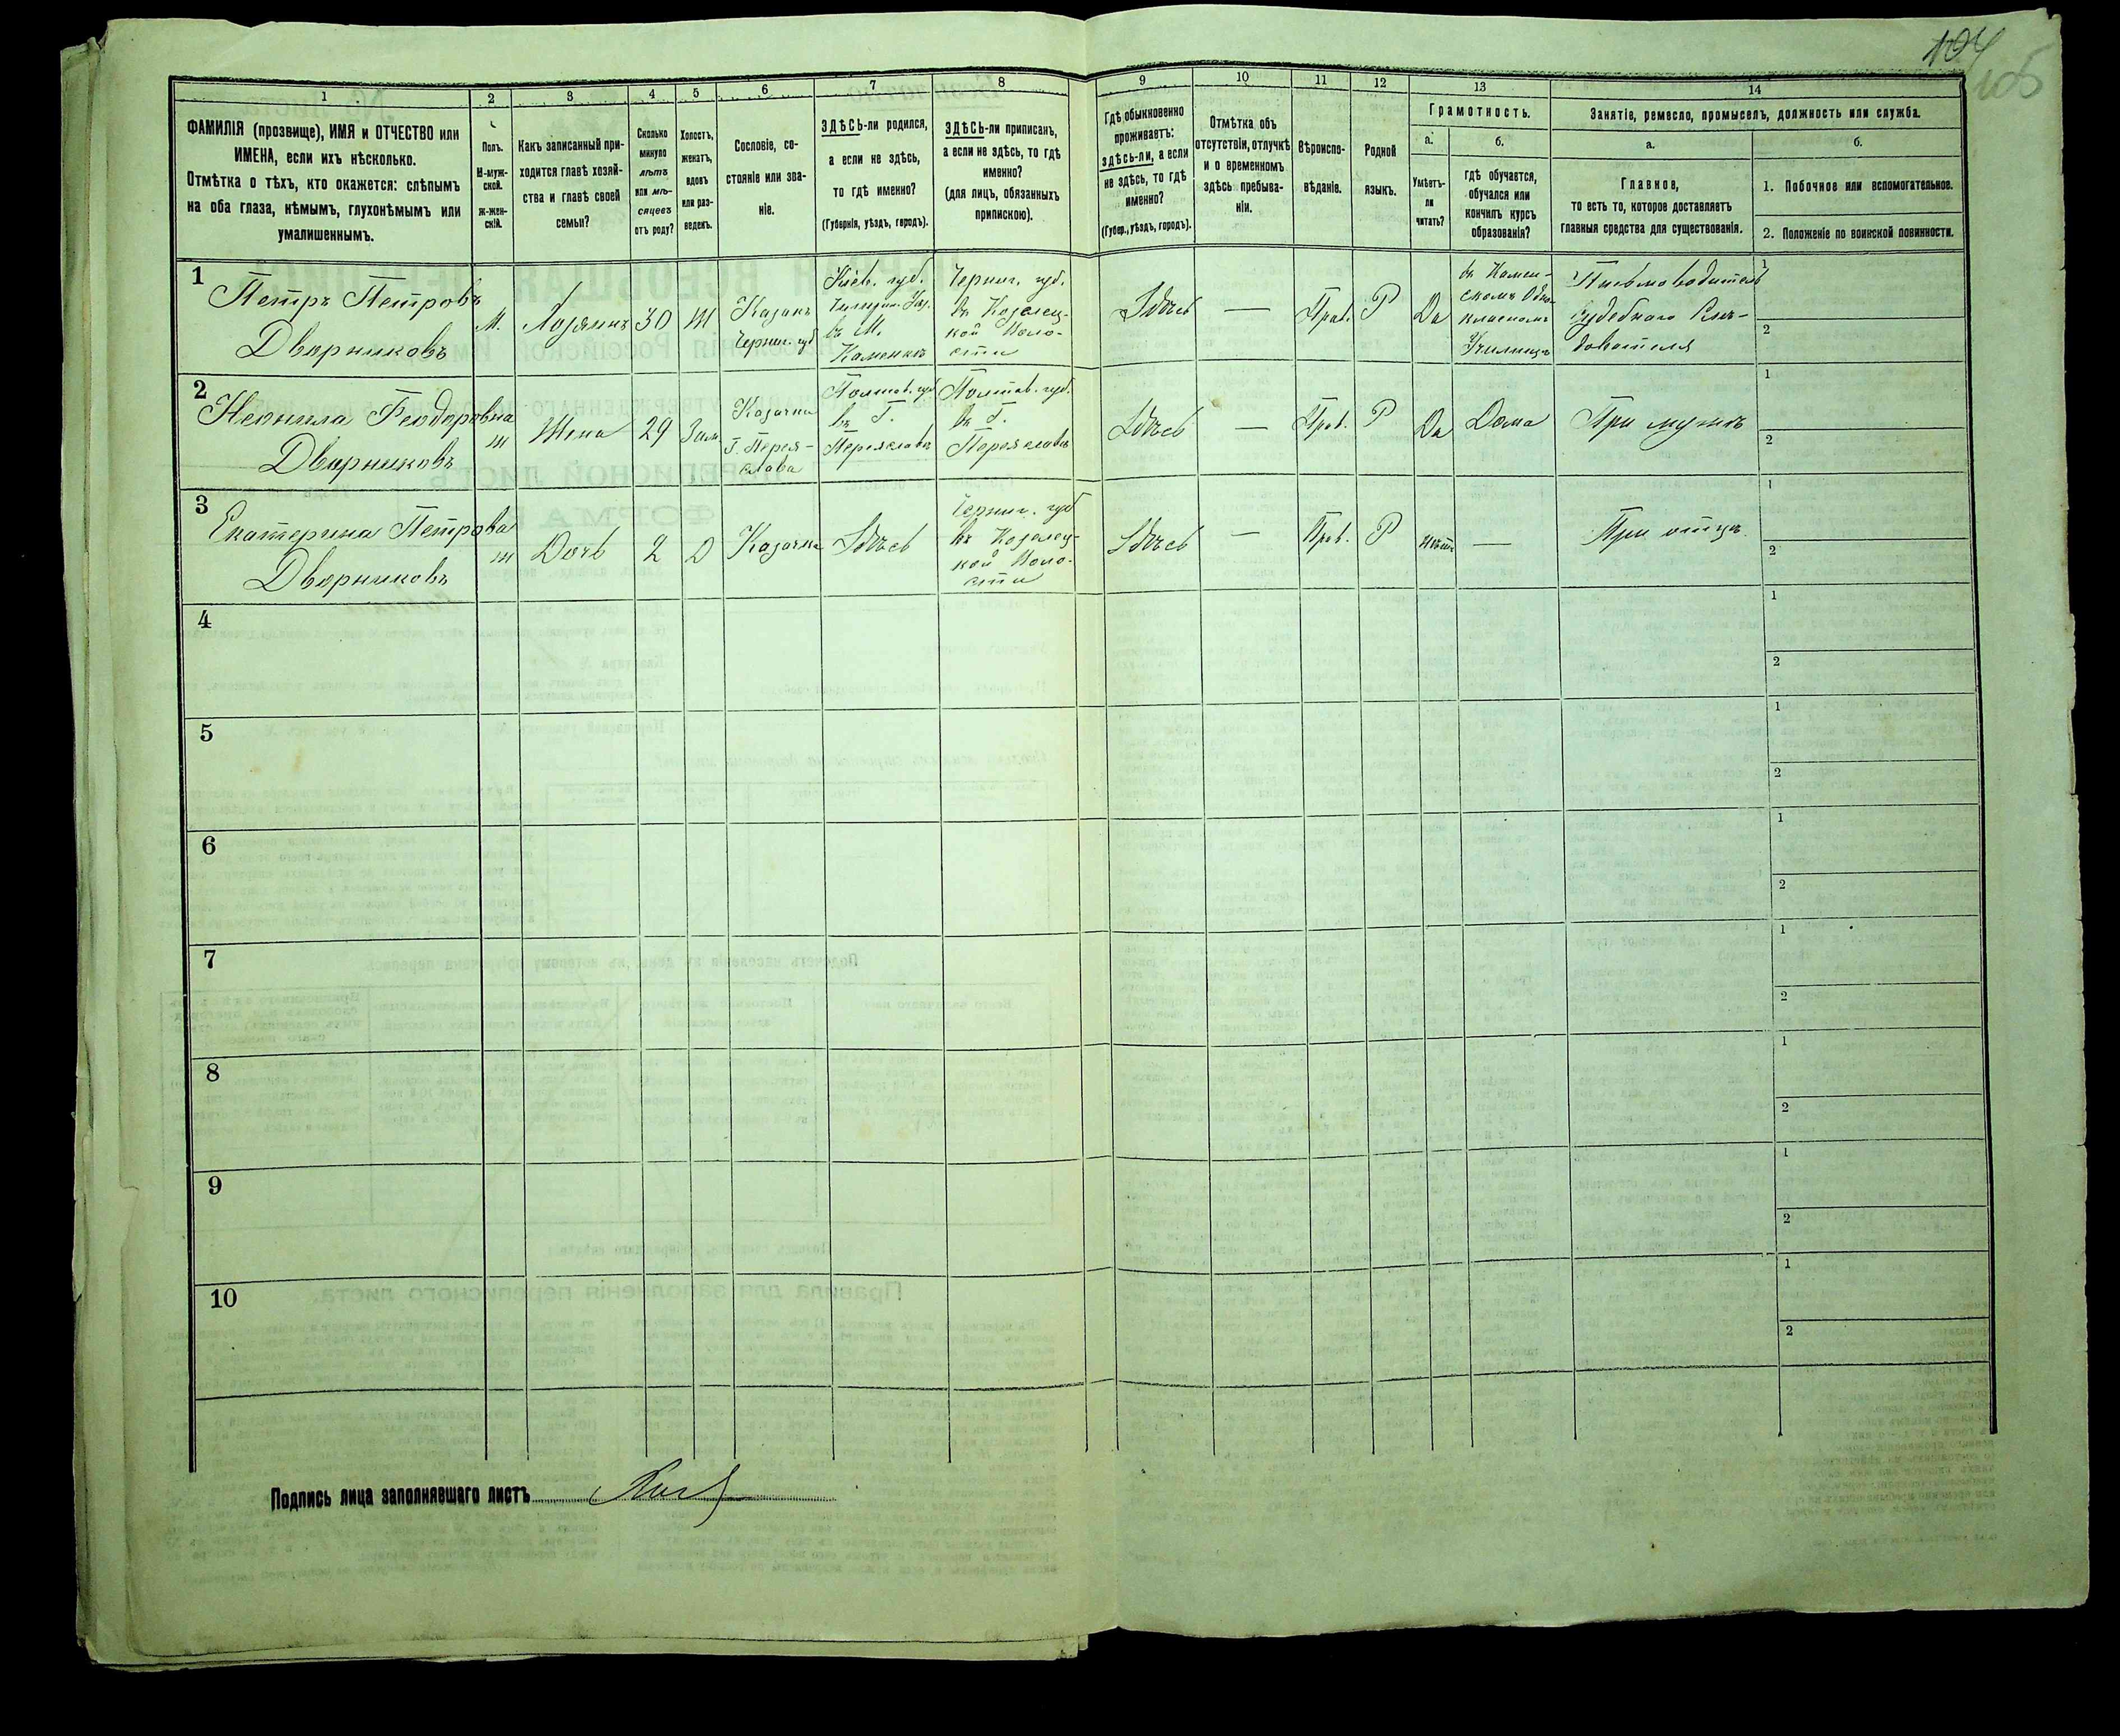 104
105
1
2
3
4
5
6
7
8
9
10
11
12
13
14
ФАМИЛІЯ (прозвище), ИМЯ и ОТЧЕСТВО или
ИМЕНА, если ихъ нѣсколько.
Отмѣтка о тѣхъ, кто окажется: слѣпымъ
на оба глаза, нѣмымъ, глухонѣмымъ или
умалишеннымъ.
Полъ.
М-муж-
ской.
Ж-жен-
скій.
Какъ записанный при-
ходится главѣ хозяй-
ства и главѣ своей
семьи?
Сколько
минуло
лѣтъ
или мѣ-
сяцевъ
отъ роду?
Холостъ,
женатъ,
вдовъ
или раз-
веденъ.
Сословіе, со-
стояніе или зва-
ніе.
ЗДѢСЬ-ли родился,
а если не здѣсь,
то гдѣ именно?
(Губернія, уѣздъ, городъ).
ЗДѢСЬ-ли приписанъ,
а если не здѣсь, то гдѣ
именно?
(для лицъ, обязанныхъ
припискою).
Гдѣ обыкновенно
проживаетъ:
здѣсь-ли, а если
не здѣсь, то гдѣ
именно?
(Губер., уѣздъ, городъ).
Отмѣтка объ
отсутствіи, отлучкѣ
и о временномъ
здѣсь пребыва-
ніи.
Вѣроиспо-
вѣданіе.
Родной
языкъ.
Грамотность.
а.
Умѣетъ-
ли
читать?
б.
гдѣ обучается,
обучался или
кончилъ курсъ
образованія?
Занятіе, ремесло, промыселъ, должность или служба.
а.
Главное,
то есть то, которое доставляетъ
главныя средства для существованія.
б.
1. Побочное или вспомогательное.
2. Положеніе по воинской повинности.
1
Петръ Петровъ
Дворниковъ
М.
Хозяинъ
30
Ж
Казакъ
Черниг. губ
Кіев. губ.
въ М.
Каменкѣ
Черниг. губ.
въ Козелец-
кой Воло-
сти
Здѣсь
—
Прав.
Р
Да
въ Камен-
скомъ Одно
класномъ
Училищѣ
Письмоводитель
Судебнаго Слѣ-
дователя
1
2
2
Неонила Феодоровна
Дворниковъ
Ж
Жена
29
Зам
Казачка
Г. Перея-
слава
Полтав. губ
въ Г.
Переяславѣ
Полтав. губ.
въ Г.
Переяславѣ
Здѣсь
—
Прав.
Р
Да
Дома
При мужѣ
1
2
3
Екатерина Петрова
Дворниковъ
Ж
Дочь
2
Д
Казачка
Здѣсь
Черниг. губ
въ Козелец-
кой Воло-
сти
Здѣсь
—
Прав.
Р
нѣтъ
—
При отцѣ
1
2
4
1
2
5
1
2
6
1
2
7
1
2
8
1
2
9
1
2
10
1
2
Подпись лица заполнявшаго листъ